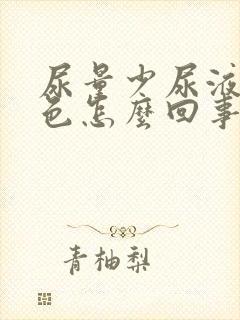 尿量少尿液
色怎麼回事
青柚梨